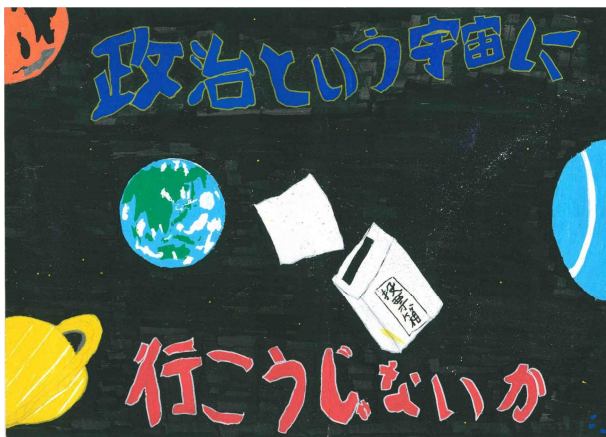 政治という宇宙に
投票箱
行こうじゃないか